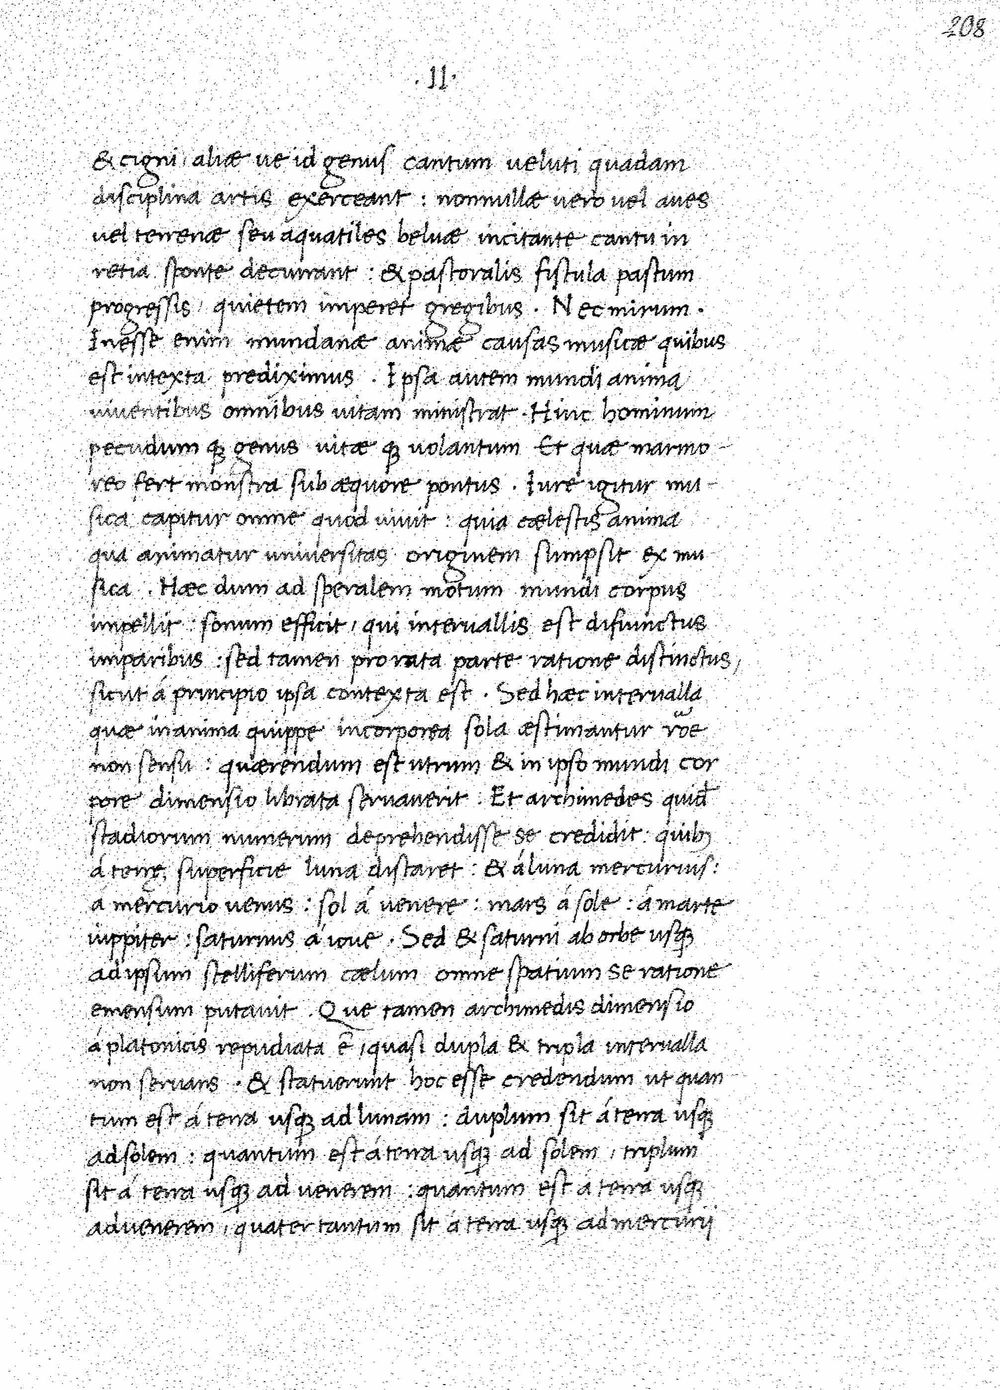 208
· II ·
& cigni, aliæ ve id genus cantum veluti quadam
disciplina artis exerceant : nonnullæ vero vel aues
vel terrenæ seu aquatiles beluæ incitante cantu in
retia sponte decurrant : & pastoralis fistula pastum
progressis, quietem imperet gregibus . Nec mirum .
Inesse enim mundanæ animæ causas musicæ quibus
est intexta prediximus . Ipsa autem mundi anima
viuentibus omnibus vitam ministrat . Hinc hominum
pecudum q3 genus vitæ q3 volantum Et quæ marmo-
reo fert monstra sub æquore pontus . Iure igitur mu-
sica capitur omne quod viuit : quia cælestis anima
qua animatur vniuersitas originem sumpsit ex mu
sica . Hæc dum ad speralem motum mundi corpus
impellit : sonum efficit, qui interuallis est disiunctus
imparibus : sed tamen pro rata parte ratione distinctus,
sicut á principio ipsa contexta est . Sed hæc interualla
quæ in anima quippe incorporea sola æstimantur rõe
non sensu : quærendum est vtrum & in ipso mundi cor
pore dimensio librata seruauerit : Et archimedes quid̃
stadiorum numerum deprehendisse se credidit : quib3
á terrę superficie luna distaret : & á luna mercurius :
á mercurio venus : sol á venere : mars á sole : á marte
iuppiter : saturnus á ioue . Sed & saturni ab orbe vsq3
ad ipsum stelliferum cælum omne spatium se ratione
emensum putauit . Que tamen archimedis dimensio
á platonicis repudiata ẽ, quasi dupla & tripla interualla
non seruans . & statuerunt hoc esse credendum vt quan
tum est á terra vsq3 ad lunam : duplum sit á terra vsq3
ad solem : quantum est á terra vsq3 ad solem, triplum
sit á terra vsq3 ad venerem : quantum est á terra vsq3
ad venerem, quater tantum sit á terra vsq3 ad mercurij